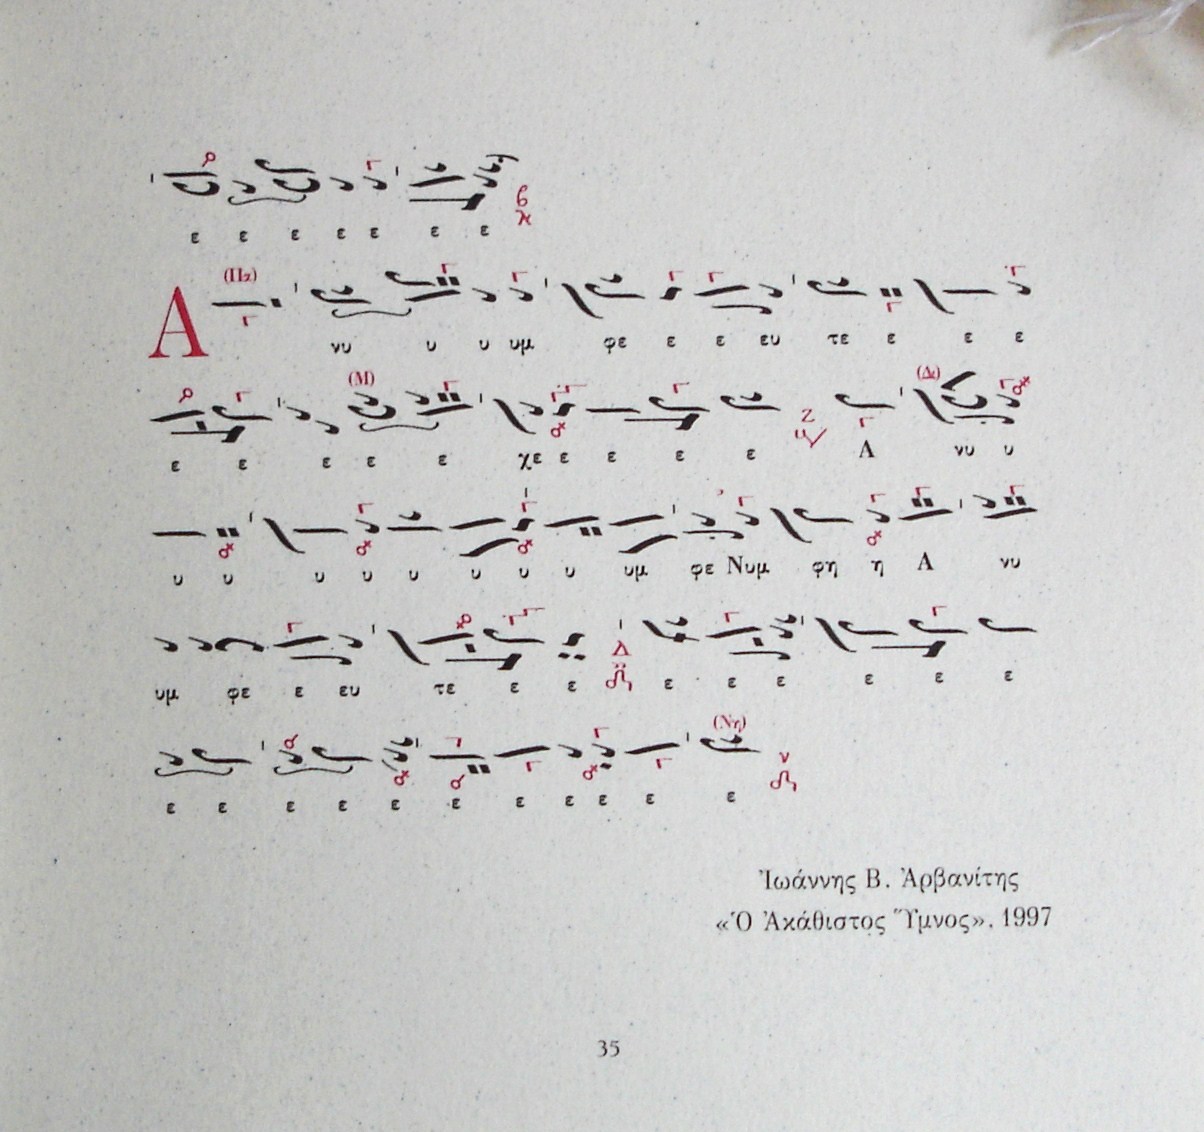 ε ε ε ε ε ε ε
(Πα)
Α νυ υ υ υμ φε ε ε ευ τε ε ε ε
(Μ) (Δι)
ε ε ε ε ε χε ε ε ε ε Α νυ υ
υ υ υ υ υ υ υ υ υμ φε Νυμ φη η Α νυ
υμ φε ε ευ τε ε ε Δ ε ε ε ε ε ε
(Νη)
ε ε ε ε ε ε ε ε ε ε ε
Ἰωάννης Β. Ἀρβανίτης
«Ὁ Ἀκάθιστος Ὕμνος», 1997
35